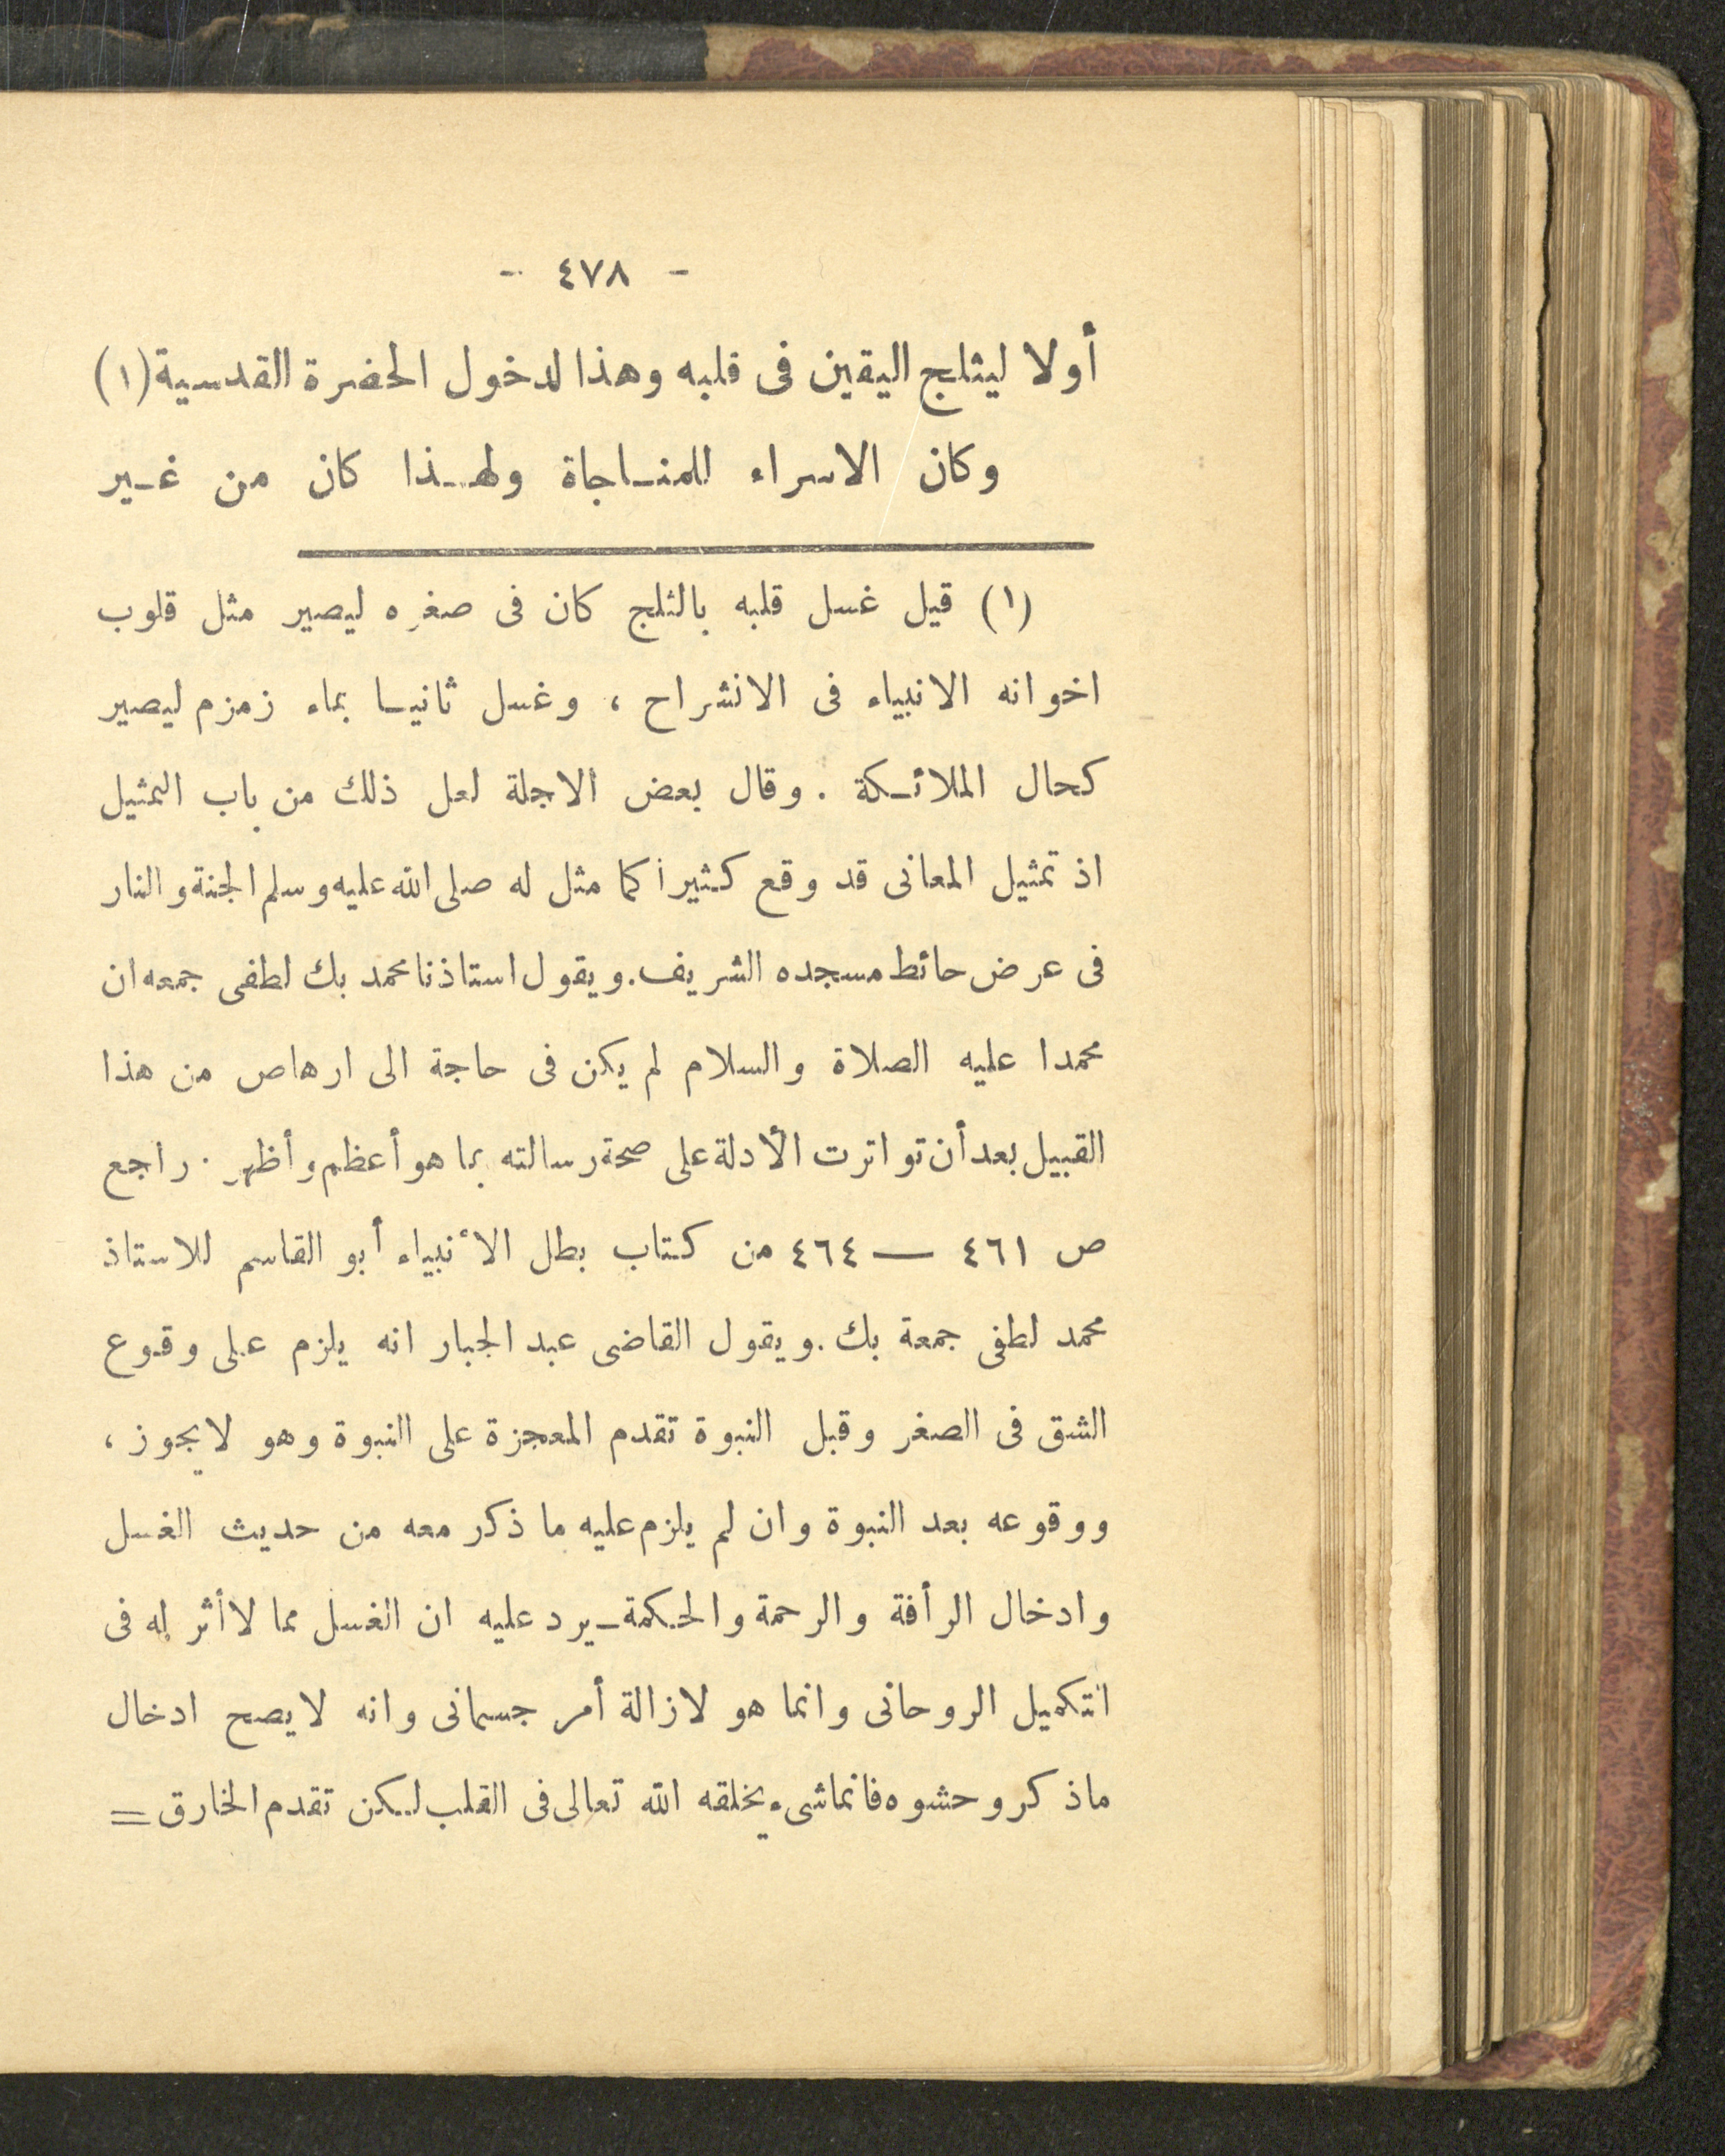 - ٤٧٨ -
أولا ليثلج اليقين فى قلبه وهذا لدخول الحضرة القدسية (١)
وكان الاسراء للمنـاجاة ولهـذا كان من غـير
(١) قيل غسل قلبه بالثلج كان فى صغره ليصير مثل قلوب
اخوانه الانبياء فى الانشراح ، وغسل ثانيـا بماء زمزم ليصير
كحال الملائـكة . وقال بعض الاجلة لعل ذلك من باب التمثيل
اذ تمثيل المعانى قد وقع كثيرا كما مثل له صلى الله عليه وسلم الجنة والنار
فى عرض حائط مسجده الشريف. ويقول استاذنا محمد بك لطفى جمعه ان
محمدا عليه الصلاة والسلام لم يكن فى حاجة الى ارهاص من هذا
القبيل بعد أن تواترت الأدلة على صحة رسالته بما هو أعظم وأظهر . راجع
ص ٤٦١ — ٤٦٤ من كتاب بطل الأنبياء أبو القاسم للاستاذ
محمد لطفى جمعة بك . ويقول القاضى عبد الجبار انه يلزم على وقوع
الشق فى الصغر وقبل النبوة تقدم المعجزة على النبوة وهو لايجوز ،
ووقوعه بعد النبوة وان لم يلزم عليه ما ذكر معه من حديث الغسل
وادخال الرأفة والرحمة والحكمة ـ يرد عليه ان الغسل مما لاأثر له فى
التكميل الروحانى وانما هو لازالة أمر جسمانى وانه لايصح ادخال
ماذكر وحشوه فانما شىء يخلقه الله تعالى فى القلب لـكن تقدم الخارق =